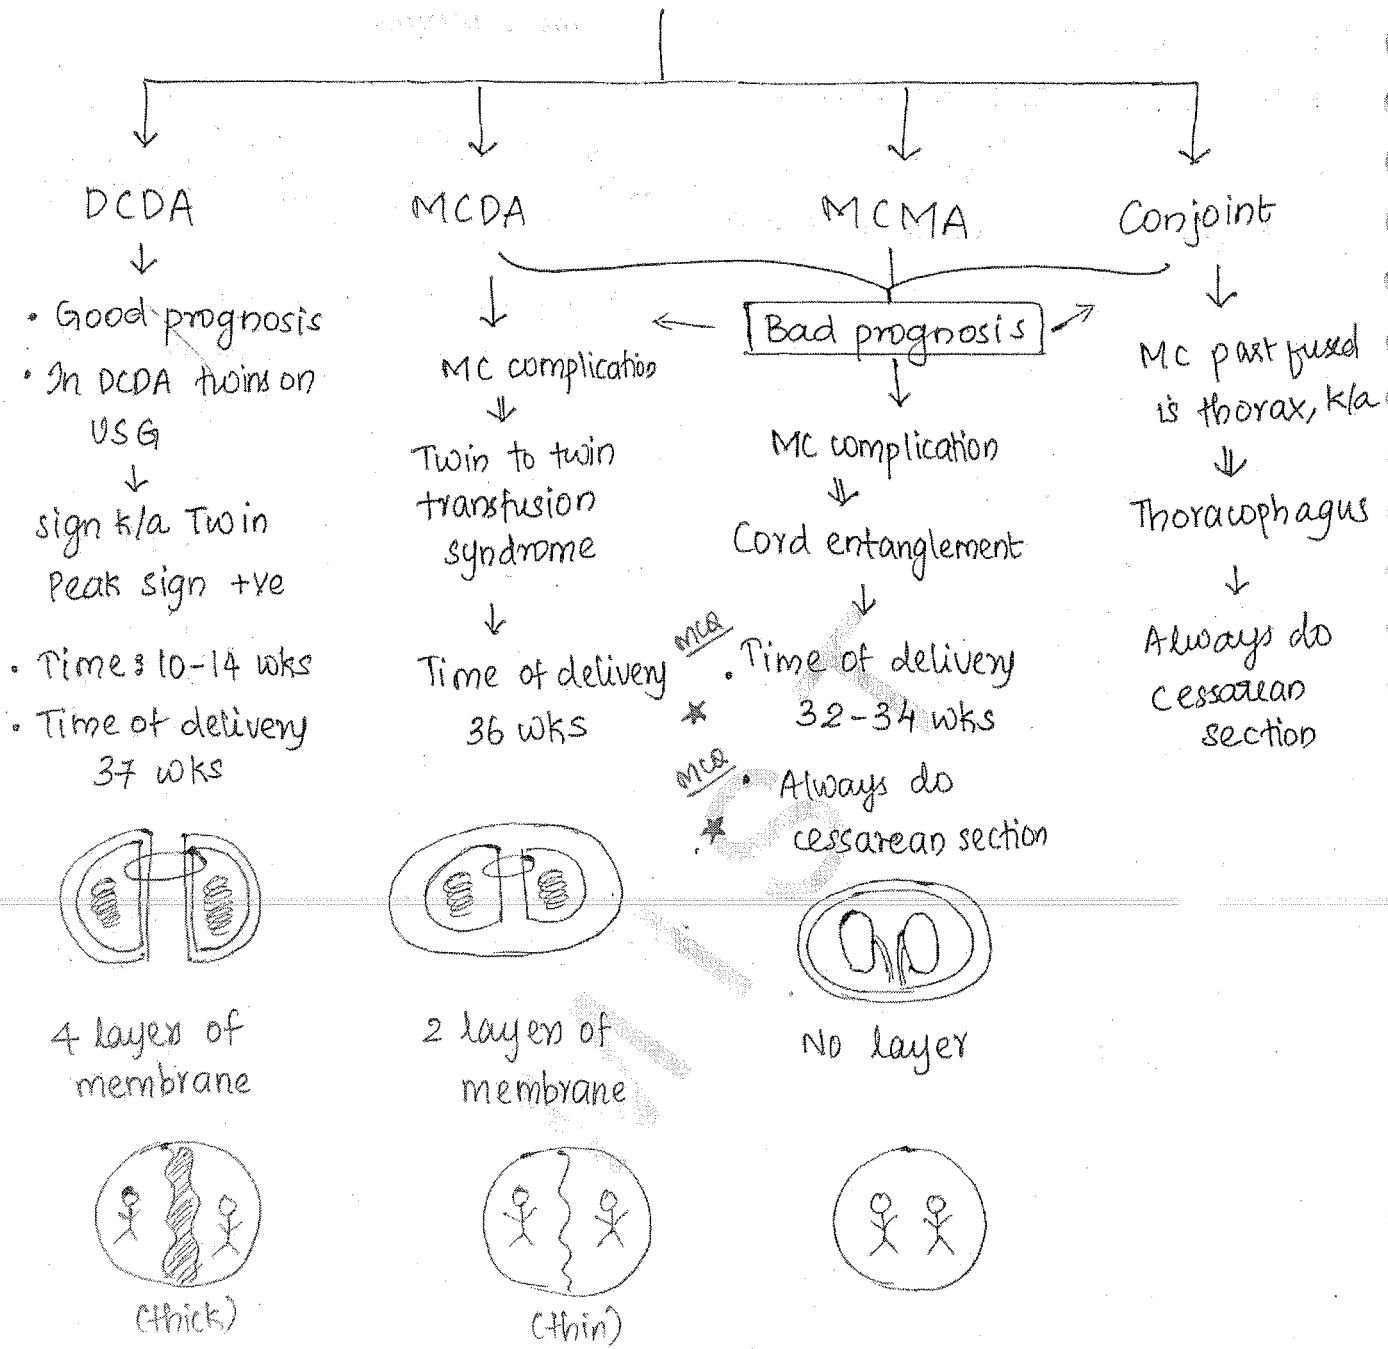 DCDA
• Good prognosis
• In DCDA twins on
USG
sign k/a Twin
Peak sign +ve
• Time: 10-14 wks
• Time of delivery
37 wks
4 layers of
membrane
(thick)
MCDA
MC complication
Twin to twin
transfusion
syndrome
Time of delivery
36 wks
2 layers of
membrane
(thin)
MCMA
Bad prognosis
MC complication
Cord entanglement
MCQ
• Time of delivery
32-34 wks
MCQ
• Always do
cessarean section
No layer
Conjoint
MC part fused
is thorax, k/a
Thoracophagus
Always do
cessarean
section